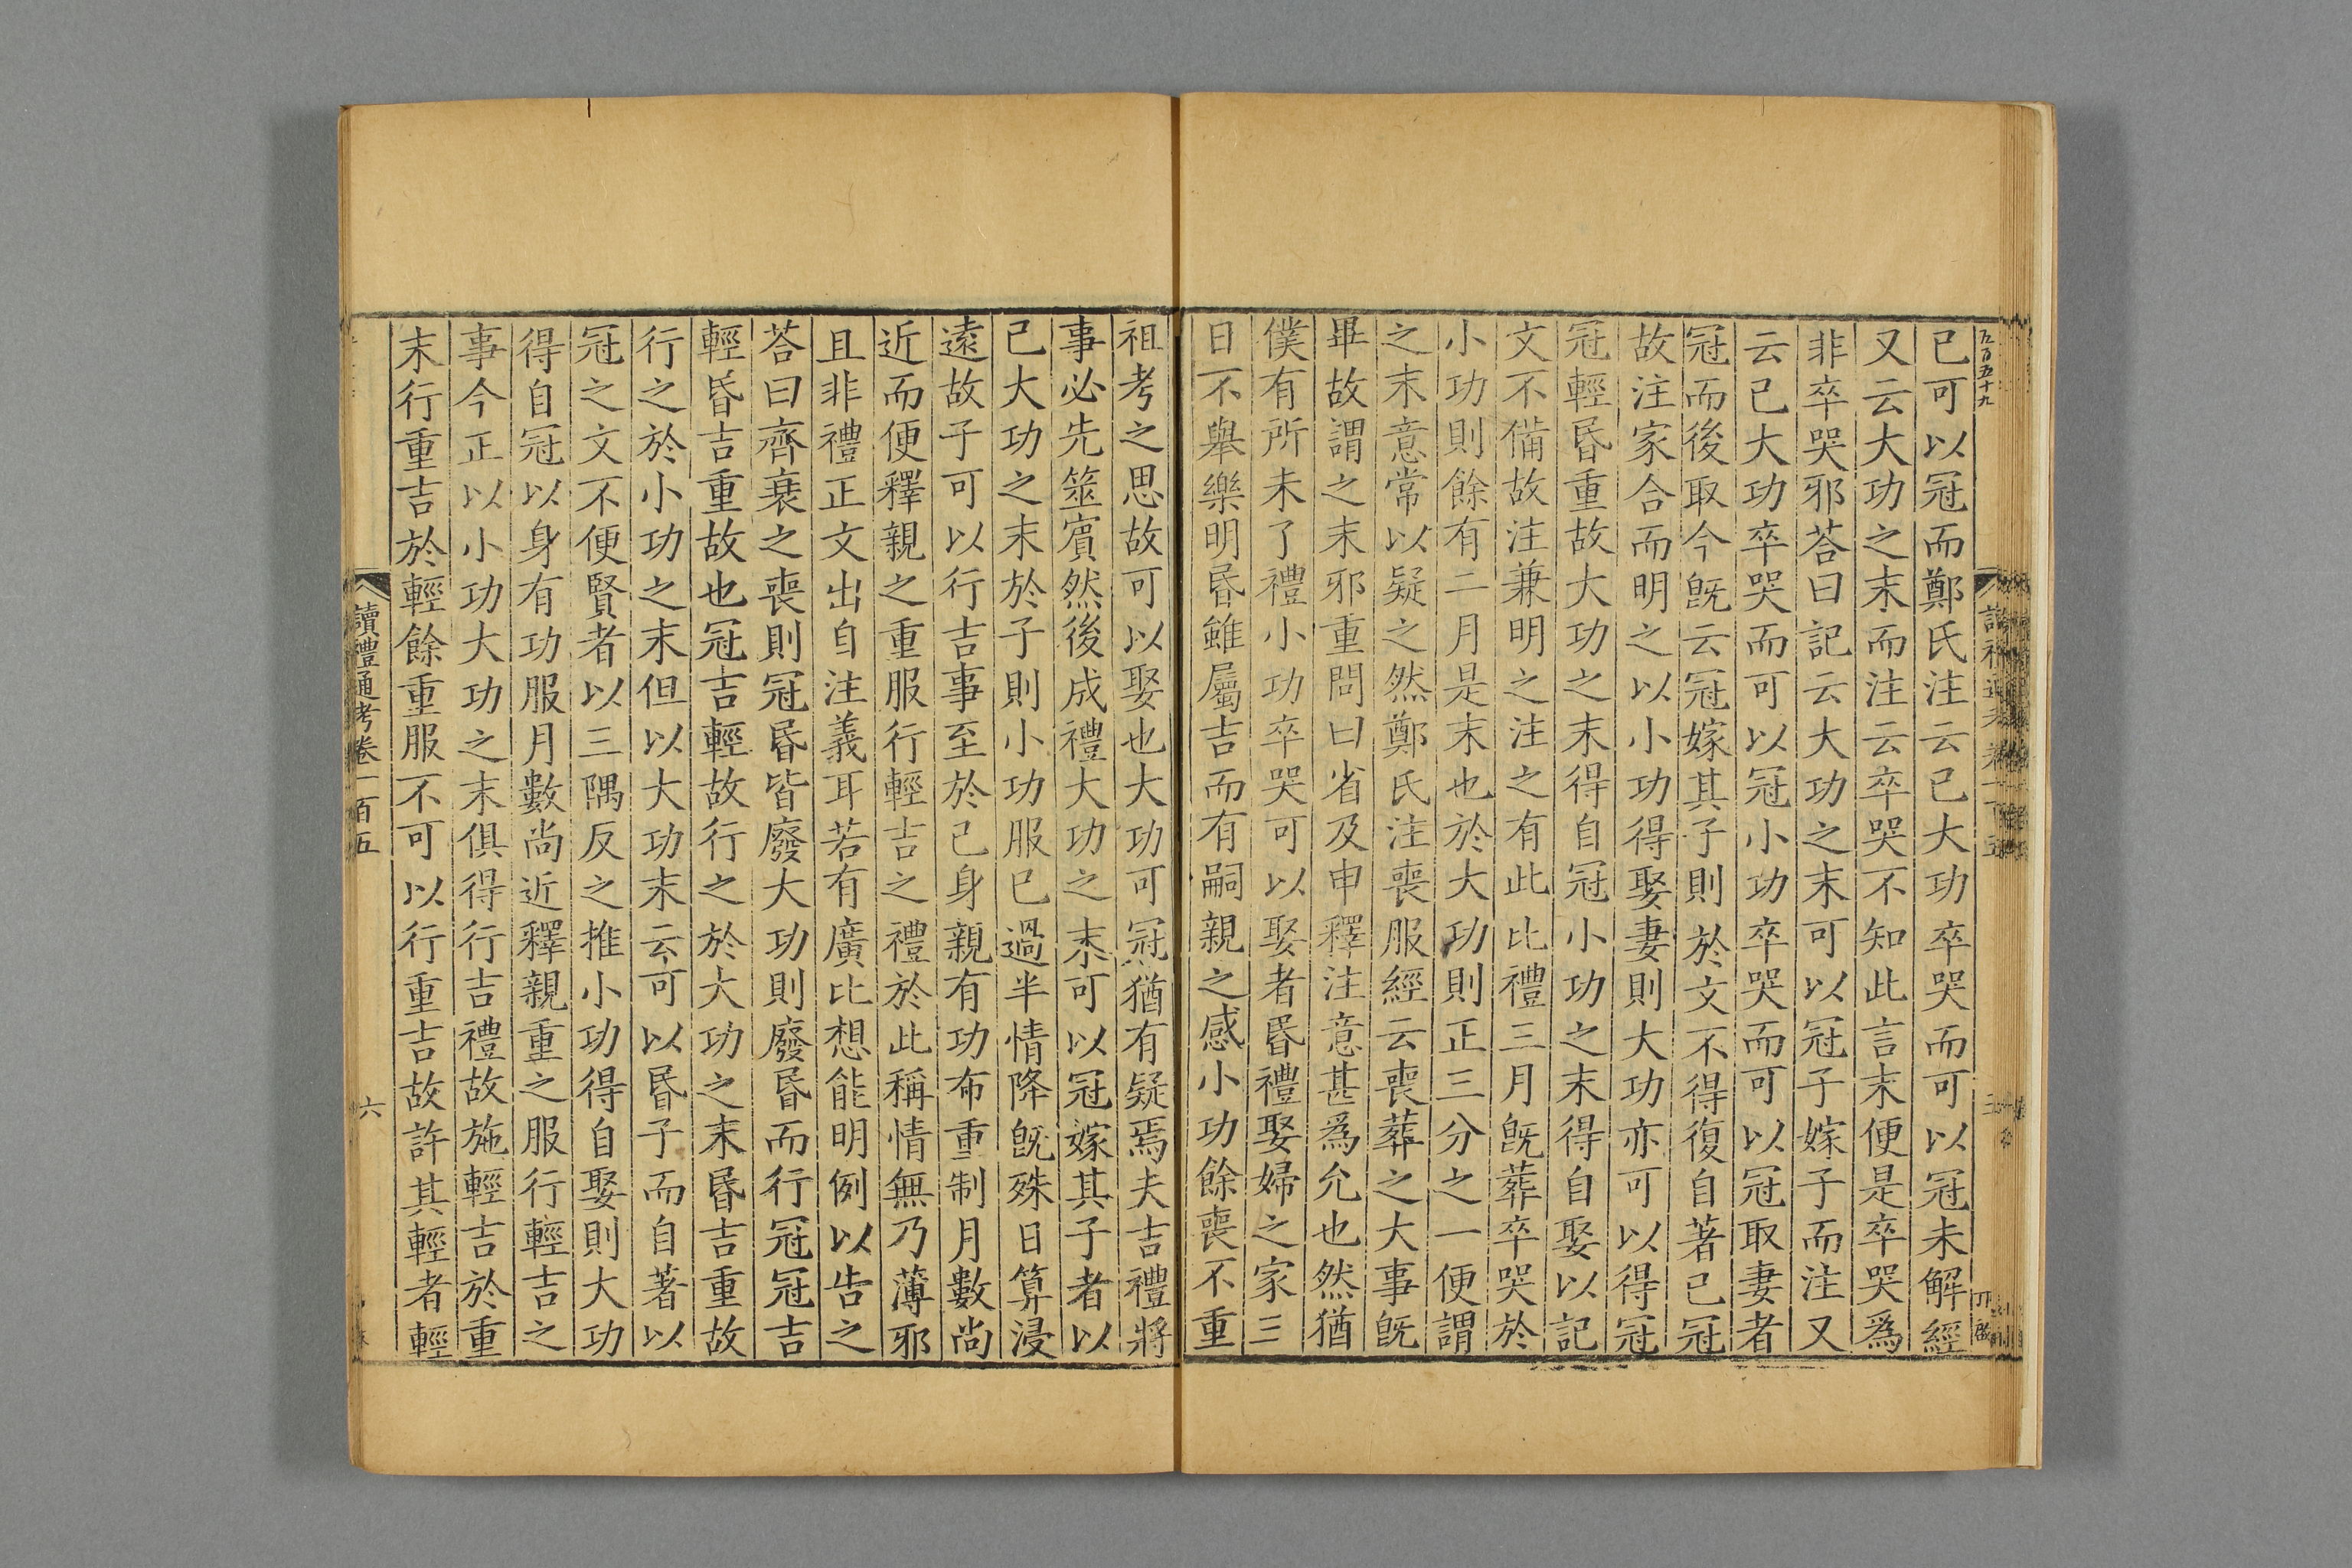 已可以冠而鄭氏注云已大功卒哭而可以冠未解經
又云大功之末而注云卒哭不知此言末便是卒哭爲
非卒哭邪荅曰記云大功之末可以冠子嫁子而注又
云已大功卒哭而可以冠小功卒哭而可以冠取妻者
冠而後取今旣云冠嫁其子則於文不得復自著已冠
故注家合而明之以小功得娶妻則大功亦可以得冠
冠輕昏重故大功之末得自冠小功之末得自娶以記
文不備故注兼明之注之有此比禮三月旣葬卒哭於
小功則餘有二月是末也於大功則正三分之一便謂
之末意常以疑之然鄭氏注喪服經云喪葬之大事旣
畢故謂之末邪重問曰省及申釋注意甚爲允也然猶
僕有所未了禮小功卒哭可以娶者昏禮娶婦之家三
日不舉樂明昏雖屬吉而有嗣親之感小功餘喪不重
祖考之思故可以娶也大功可冠猶有疑焉夫吉禮將
事必先筮賓然後成禮大功之末可以冠嫁其子者以
已大功之末於子則小功服已過半情降旣殊日算浸
遠故子可以行吉事至於已身親有功布重制月數尚
近而便釋親之重服行輕吉之禮於此稱情無乃薄邪
且非禮正文出自注義耳若有廣比想能明例以告之
荅曰齊衰之喪則冠昏皆廢大功則廢昏而行冠冠吉
輕昏吉重故也冠吉輕故行之於大功之末昏吉重故
行之於小功之末但以大功末云可以昏子而自著以
冠之文不便賢者以三隅反之推小功得自娶則大功
得自冠以身有功服月數尚近釋親重之服行輕吉之
事今正以小功大功之末俱得行吉禮故施輕吉於重
末行重吉於輕餘重服不可以行重吉故許其輕者輕
讀禮通考卷一百五
六